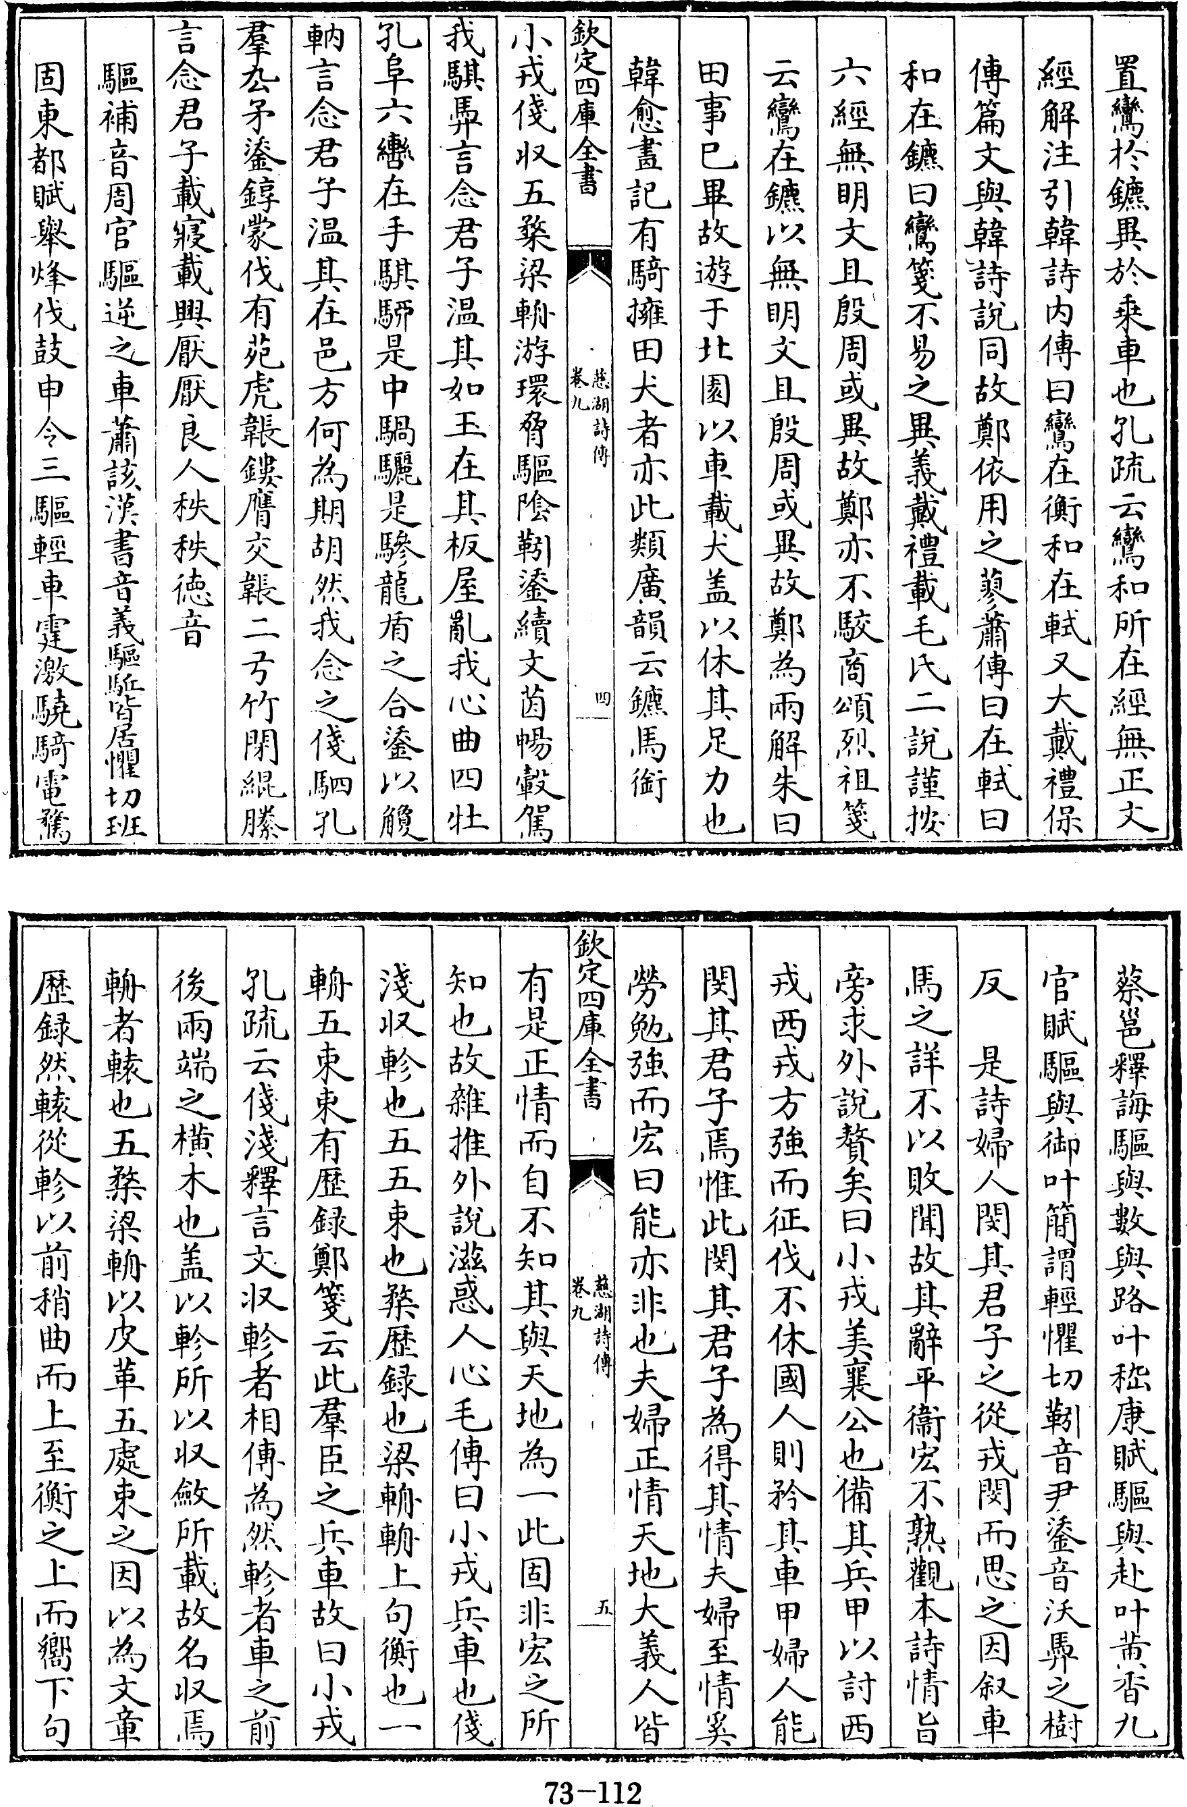 置鸞於鑣異於乘車也孔疏云鸞和所在經無正文
經解注引韓詩内傳曰鸞在衡和在軾又大戴禮保
傳篇文與韓詩說同故鄭依用之蓼蕭傳曰在軾曰
和在鑣曰鸞箋不易之異義戴禮載毛氏二說謹按
六經無明文且殷周或異故鄭亦不駮商頌烈祖箋
云鸞在鑣以無明文且殷周或異故鄭為兩解朱曰
田事已畢故遊于北園以車載犬盖以休其足力也
韓愈畫記有騎擁田犬者亦此類廣韻云鑣馬銜
欽定四庫全書
慈湖詩傳
卷九
四
小戎俴収五楘梁輈游環脅驅陰靷鋈續文茵暢轂駕
我騏馵言念君子溫其如玉在其板屋亂我心曲四牡
孔阜六轡在手騏駵是中騧驪是驂龍盾之合鋈以觼
軜言念君子溫其在邑方何為期胡然我念之俴駟孔
羣厹矛鋈錞蒙伐有苑虎韔鏤膺交韔二弓竹閉緄縢
言念君子載寢載興厭厭良人秩秩徳音
驅補音周官驅逆之車蕭該漢書音義驅駈皆居懼切班
固東都賦舉烽伐鼓申令三驅輕車霆激驍騎電騖
蔡邕釋誨驅與數與路叶嵇康賦驅與赴叶黄香九
官賦驅與御叶簡謂輕懼切靷音尹鋈音沃馵之樹
反　是詩婦人閔其君子之從戎閔而思之因叙車
馬之詳不以敗聞故其辭平衞宏不熟觀本詩情旨
旁求外說贅矣曰小戎美襄公也備其兵甲以討西
戎西戎方強而征伐不休國人則矜其車甲婦人能
閔其君子焉惟此閔其君子為得其情夫婦至情奚
勞勉強而宏曰能亦非也夫婦正情天地大義人皆
欽定四庫全書
慈湖詩傳
卷九
五
有是正情而自不知其與天地為一此固非宏之所
知也故雜推外說滋惑人心毛傳曰小戎兵車也俴
淺収軫也五五束也楘歴録也梁輈輈上句衡也一
輈五束束有歴録鄭箋云此羣臣之兵車故曰小戎
孔疏云俴淺釋言文収軫者相傳為然軫者車之前
後兩端之橫木也盖以軫所以収斂所載故名収焉
輈者轅也五楘梁輈以皮革五處束之因以為文章
歴録然轅從軫以前稍曲而上至衡之上而嚮下句
73-112